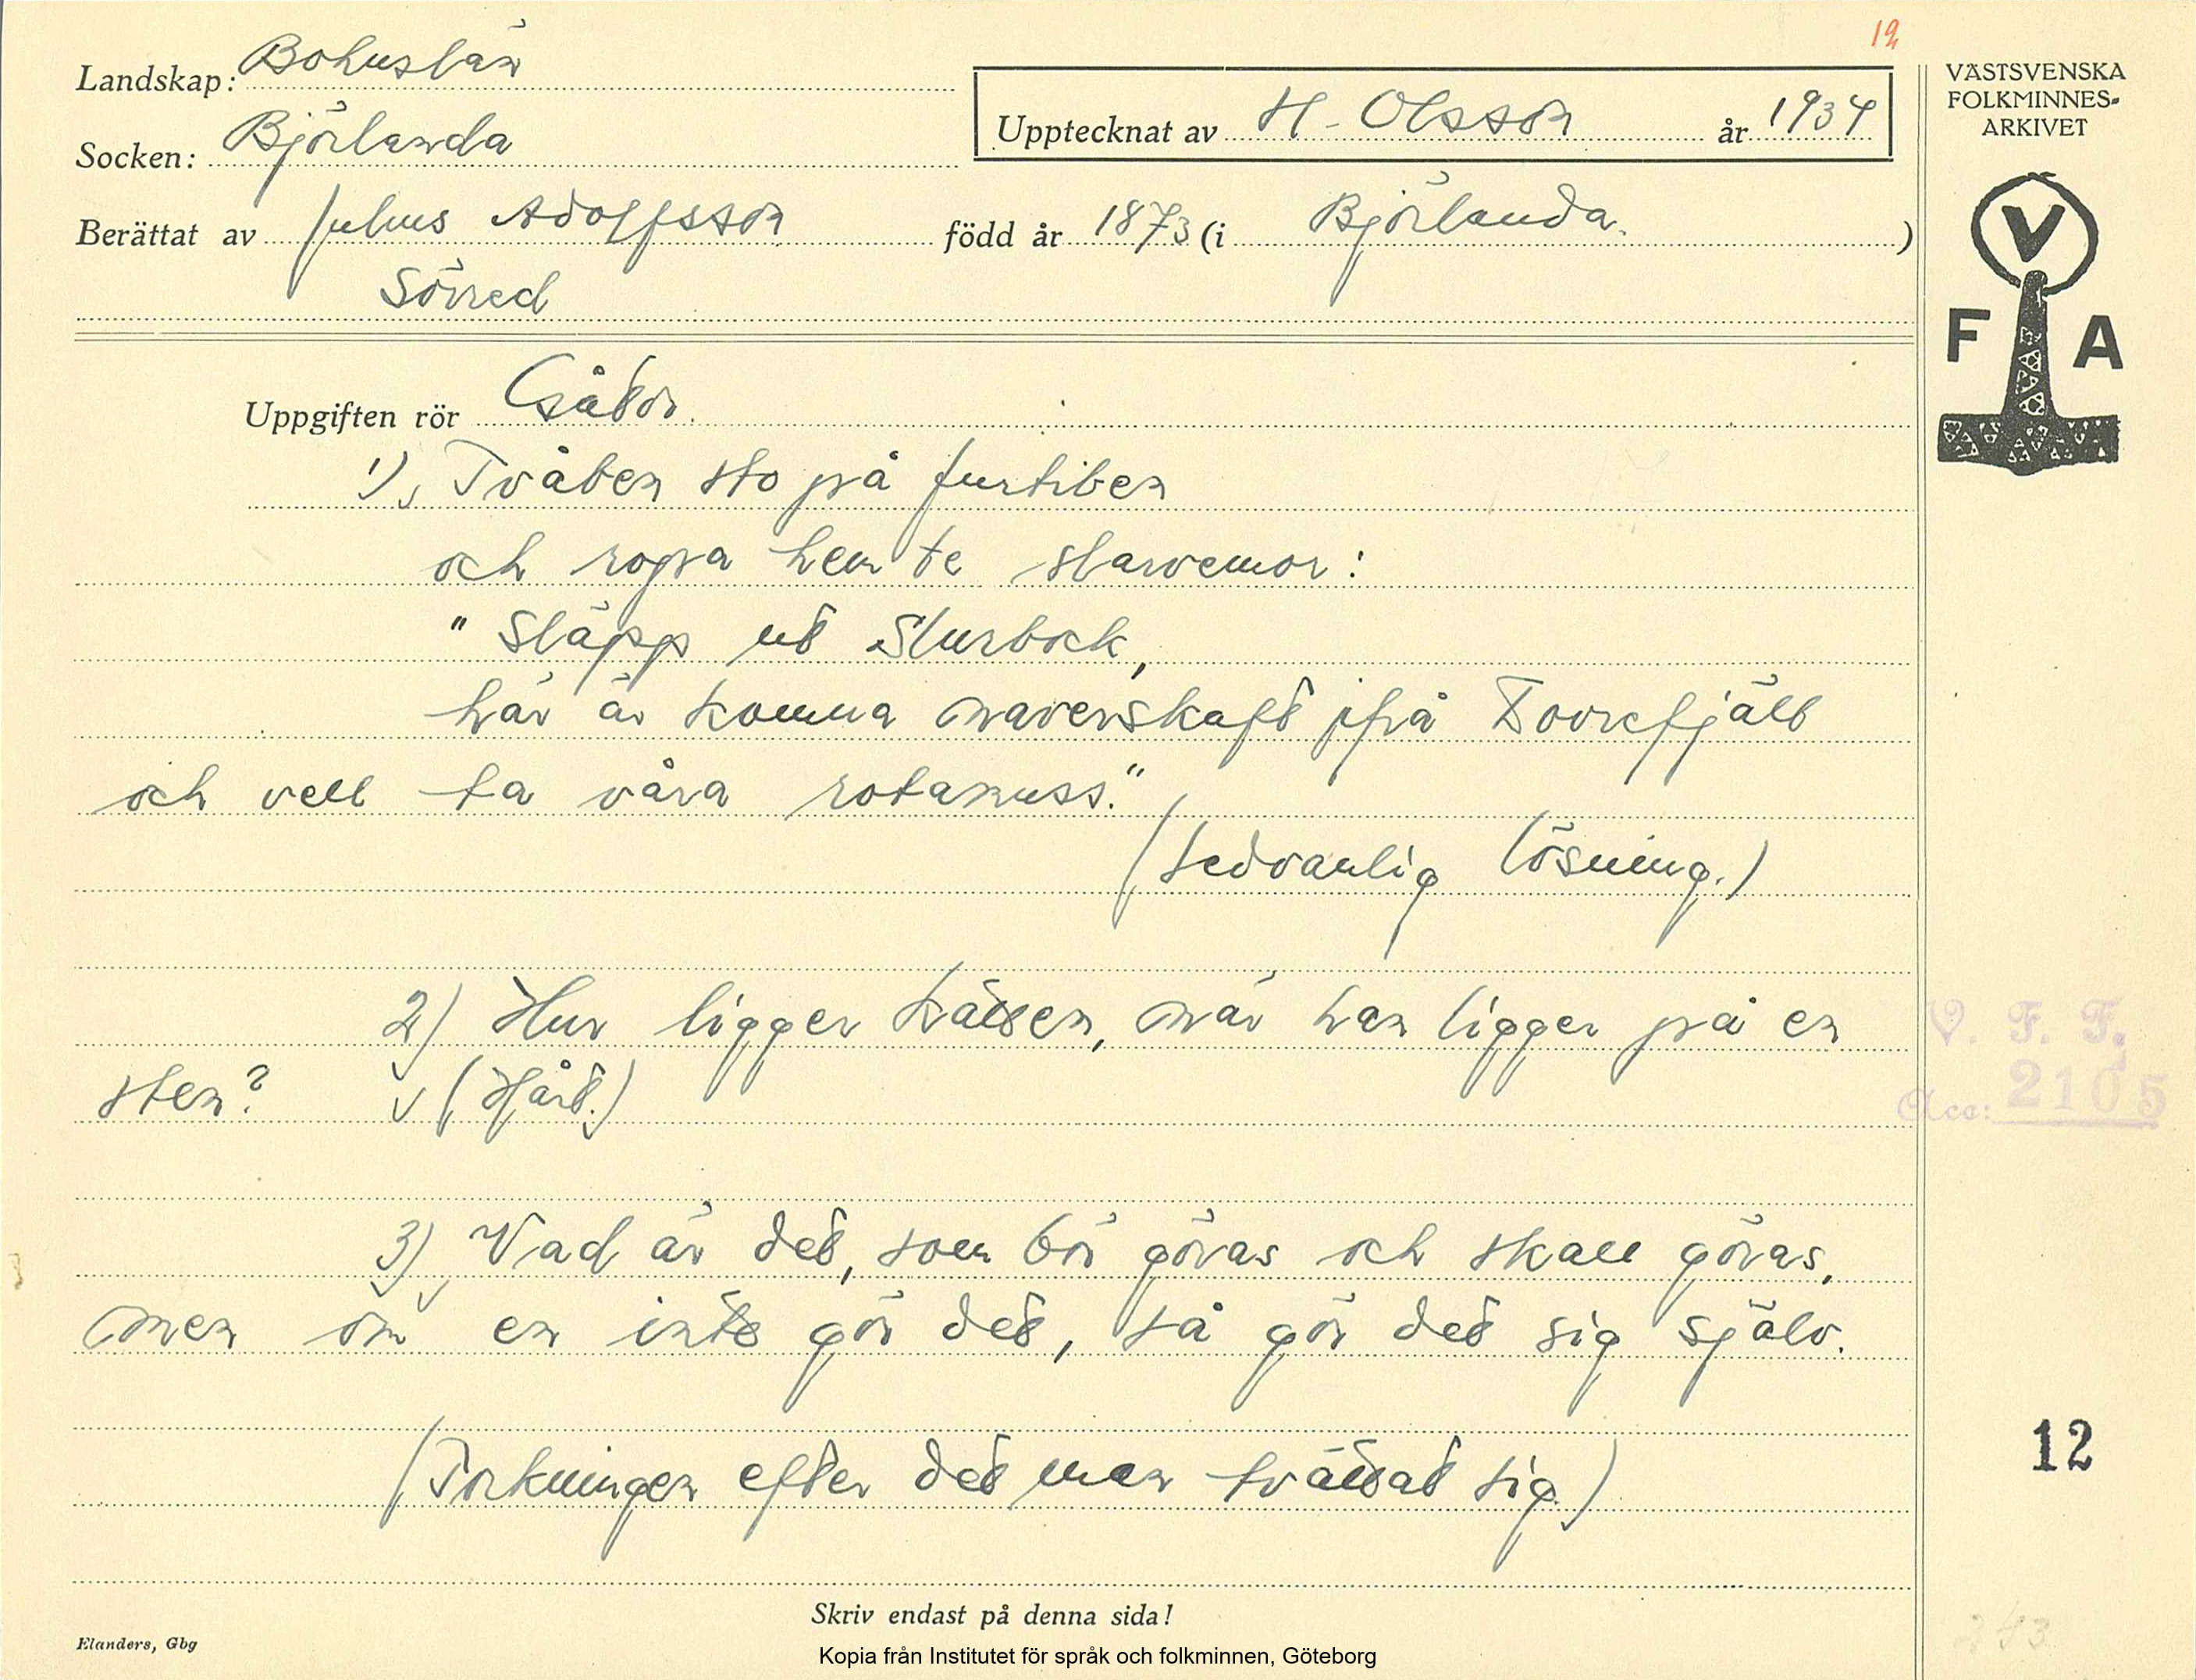 12
Landskap: Bohuslän
Socken: Björlanda
Upptecknat av H. Olsson år 1934
Berättat av Julius Adolfsson född år 1873 (i Björlanda.)
Sörred
VÄSTSVENSKA
FOLKMINNES-
ARKIVET
V
F A
Uppgiften rör Gåtor.
1) Tvåben sto på furtiben
och ropa hem te slarvemor:
"Släpp ut Slurbock,
här är komma naverskaft ifrå Dovrefjäll
och vell ta våra rotanuss."
(Sedvanlig lösning.)
2) Hur ligger kätten, när han ligger på en
sten? (Hårt.)
V. F. F.
Acc: 2105
3) Vad är det, som bör göras och skall göras,
men om en inte gör det, så gör det sig själv.
(Torkningen efter det man tvättat sig)
12
Skriv endast på denna sida!
Elanders, Gbg
Kopia från Institutet för språk och folkminnen, Göteborg